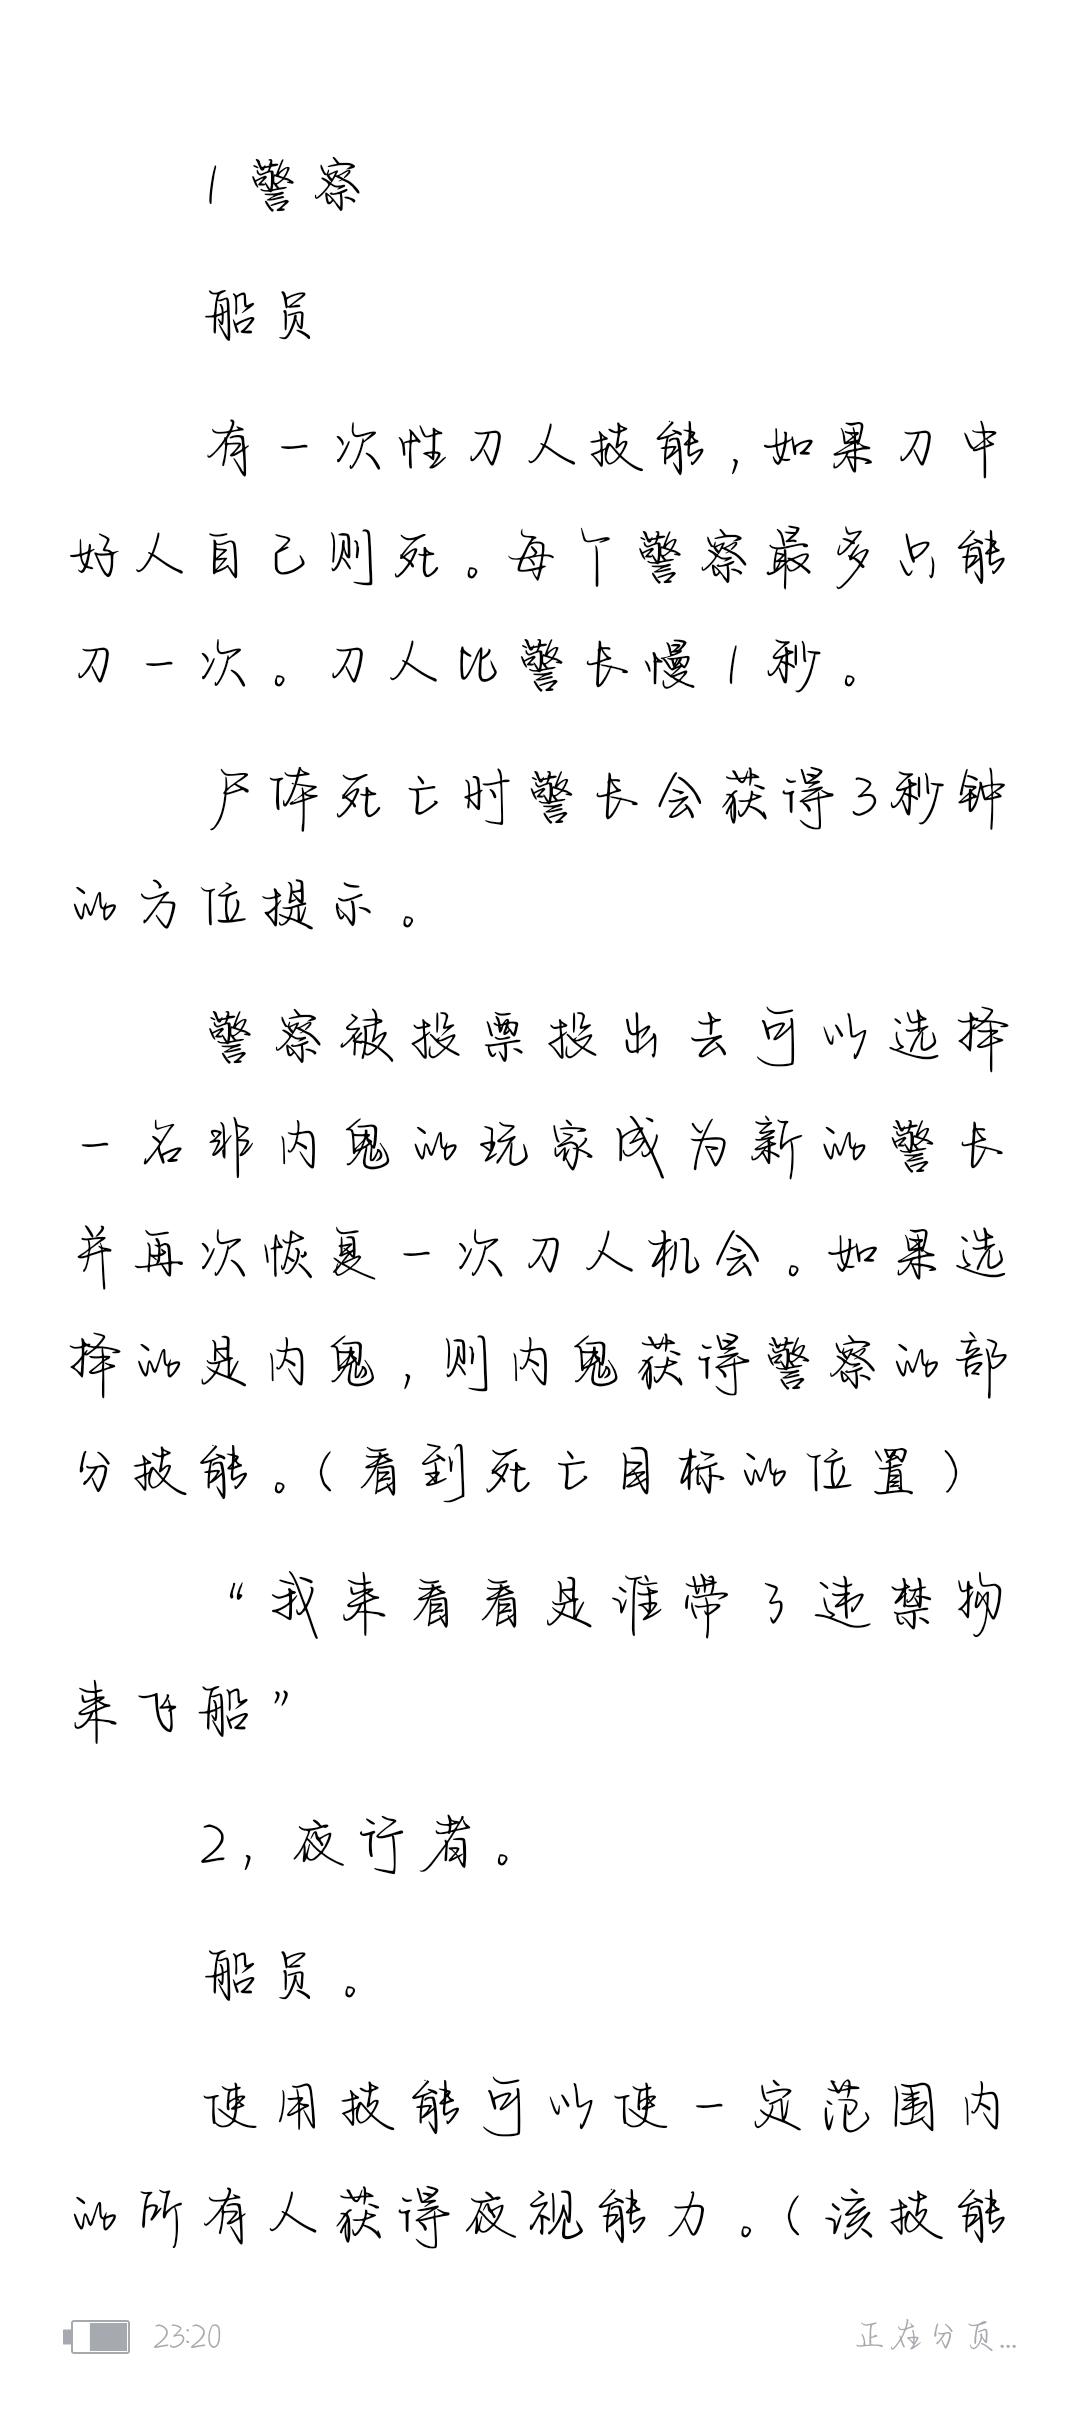 1 警察
船员
有一次性刀人技能，如果刀中
好人自己则死。每个警察最多只能
刀一次。刀人比警长慢1秒。
尸体死亡时警长会获得3秒钟
的方位提示。
警察被投票投出去可以选择
一名非内鬼的玩家成为新的警长
并再次恢复一次刀人机会。如果选
择的是内鬼，则内鬼获得警察的部
分技能。（看到死亡目标的位置）
“我来看看是谁带了违禁物
来飞船”
2，夜行者。
船员。
使用技能可以使一定范围内
的所有人获得夜视能力。（该技能
23:20
正在分页...